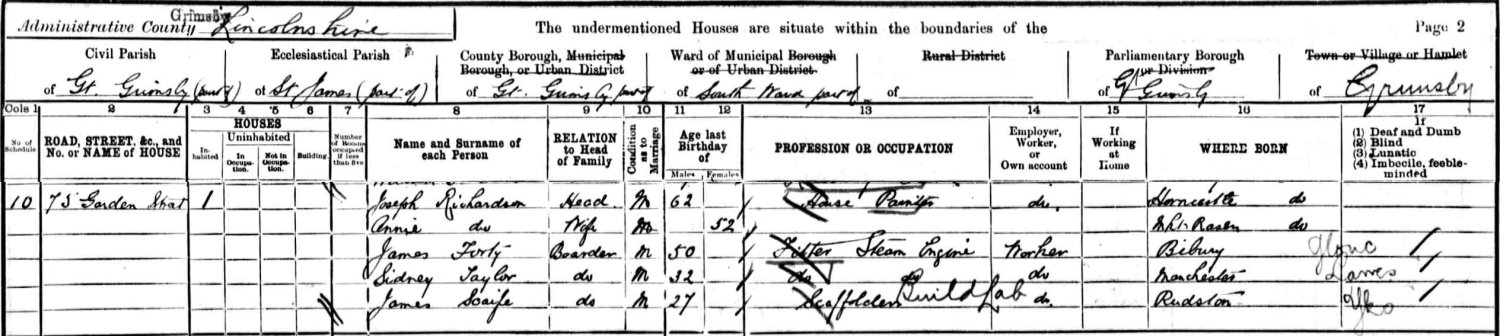 Grimsby
Administrative County Lincolnshire The undermentioned Houses are situate within the boundaries of the Page 2
Civil Parish Ecclesiastical Parish County Borough, Municipal Borough, or Urban District Ward of Municipal Borough or of Urban District Rural District Parliamentary Borough or Division Town or Village or Hamlet
of Gt. Grimsby (part of) of St. James (part of) of Gt. Grimsby part of of South Ward part of of of Gt Grimsby of Grimsby
Cols 1 2 3 4 5 6 7 8 9 10 11 12 13 14 15 16 17
No. of Schedule ROAD, STREET, &c., and No. or NAME of HOUSE HOUSES Inhabited Uninhabited In Occupation. Not in Occupation. Building. Number of Rooms occupied if less than five Name and Surname of each Person RELATION to Head of Family Condition as to Marriage Age last Birthday of Males Females PROFESSION OR OCCUPATION Employer, Worker, or Own account If Working at Home WHERE BORN If (1) Deaf and Dumb (2) Blind (3) Lunatic (4) Imbecile, feeble-minded
10 75 Garden Street 1 Joseph Richardson Head M 62 House Painter do. Horncastle do
Annie do Wife M 52 Mkt-Rasen do
James Forty Boarder M 50 Fitter Steam Engine Worker Bibury Glouc
Sidney Taylor do M 32 do do do Manchester Lancs
James Scaife do M 27 Scaffolder Build Lab do. Rudston Yko